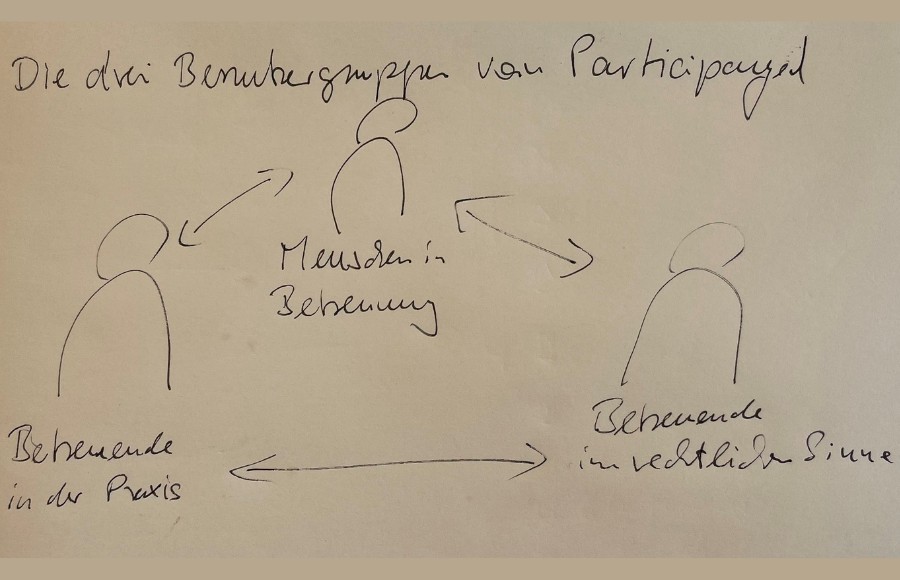 Die drei Benutzergruppen von Participangel
Menschen in
Betreuung
Betreuende
in der Praxis
Betreuende
im rechtlichen Sinne